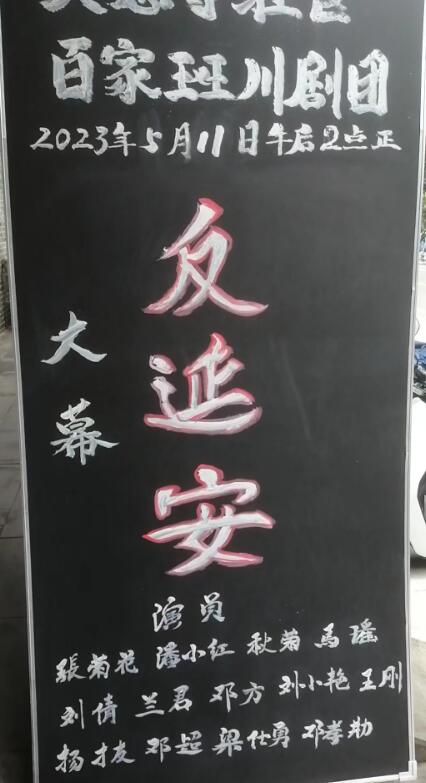 百家班川剧团
2023年5月11日午后2点正
大幕
反延安
演员
張菊花 潘小红 秋菊 馬瑶
刘倩 兰君 邓方 刘小艳 王刚
扬才友 邓超 梁仕勇 邓孝勋